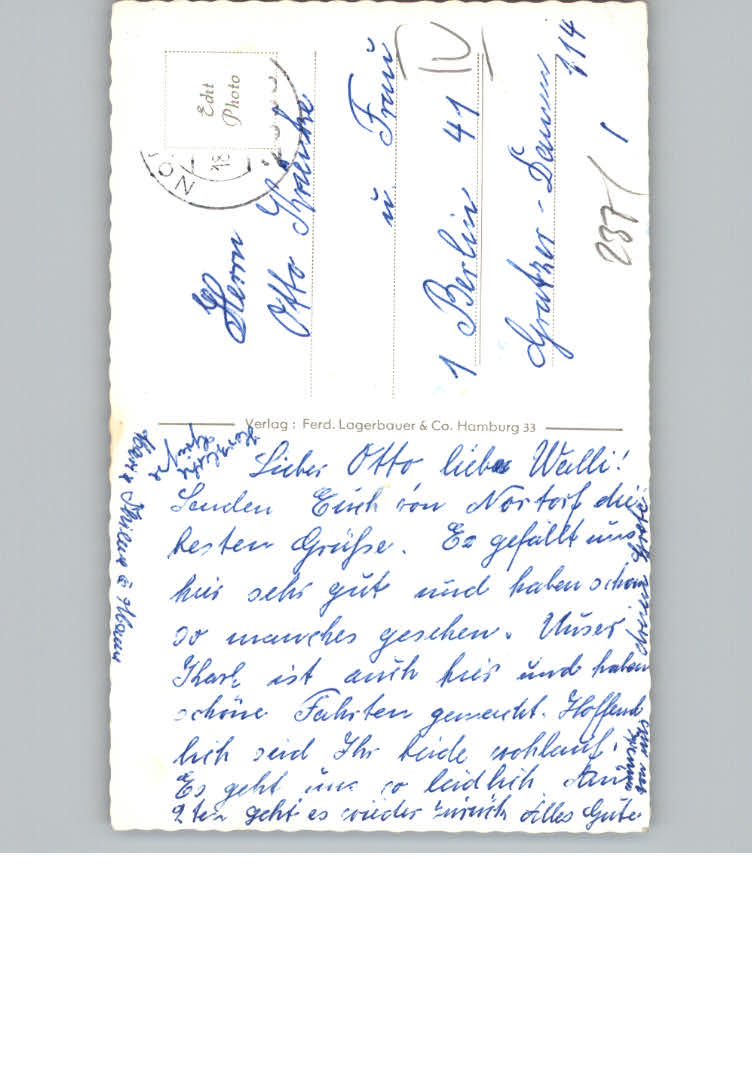 Echt
Photo
NO
18
Herrn
Otto
u. Frau
1 Berlin 41
Grazer-Damm 114
IV
237/1
Verlag: Ferd. Lagerbauer & Co. Hamburg 33
Lieber Otto liebe Walli!
Senden Euch von Nortorf die
besten Grüße. Es gefällt uns
hier sehr gut und haben schon
so manches gesehen. Unser
Karl ist auch hier und haben
schöne Fahrten gemacht. Hoffent
lich seid Ihr beide wohlauf.
Es geht uns so leidlich Am
2ten geht es wieder zurück Alles Gute
wünscht
von uns
Herzliche
Grüße